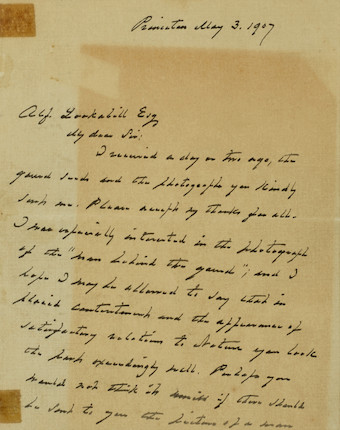 Princeton May 3. 1907
Alf. Lookabill Esq
My dear Sir:
I received a day or two ago, the
gourd seeds and the photograph you kindly
sent me. Please accept my thanks for all.
I was especially interested in the photograph
of the "man behind the gourd"; and I
hope I may be allowed to say that in
placid contentment and the appearance of
satisfactory relations to Nature you look
the part exceedingly well. Perhaps you
would not think it amiss if there should
be sent to you the picture of a man